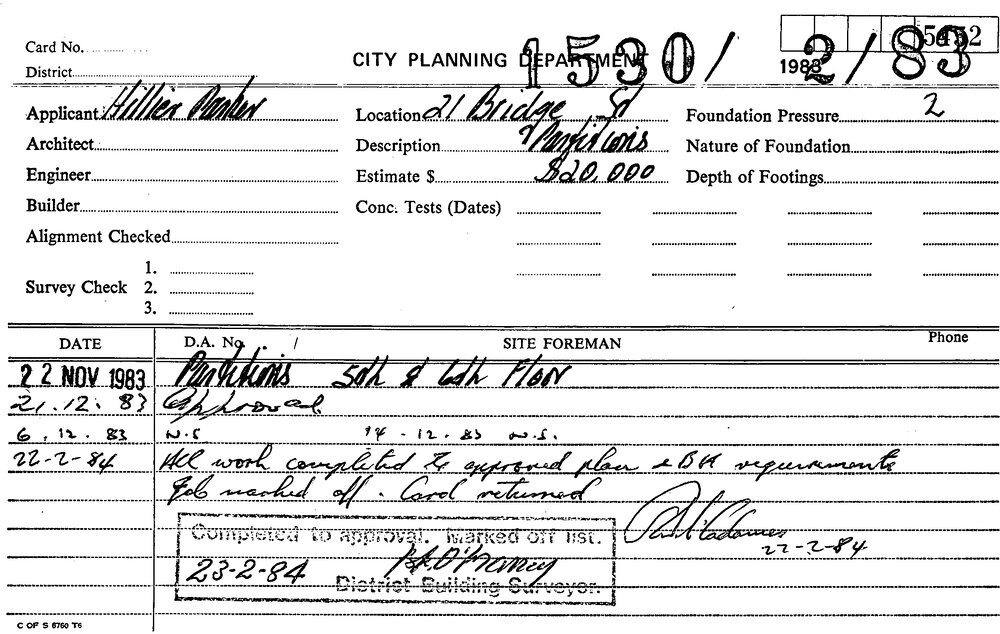 5452
Card No.
CITY PLANNING DEPARTMENT
1530/2/83
1983
District
Applicant Hillier Parker
Location 21 Bridge St
Foundation Pressure 2
Architect
Description Partitions
Nature of Foundation
Engineer
Estimate $ $20,000
Depth of Footings
Builder
Conc. Tests (Dates)
Alignment Checked
1.
Survey Check 2.
3.
DATE D.A. No. / SITE FOREMAN Phone
22 NOV 1983 Partitions 5th & 6th Floor
21.12.83 Approval
6.12.83 N.S 14-12.83 N.S.
22-2-84 All work completed to approved plan & BA requirements
Job marked off. Card returned
Completed to approval. Marked off list.
22-2-84
23-2-84
District Building Surveyor.
C OF S 6760 T6